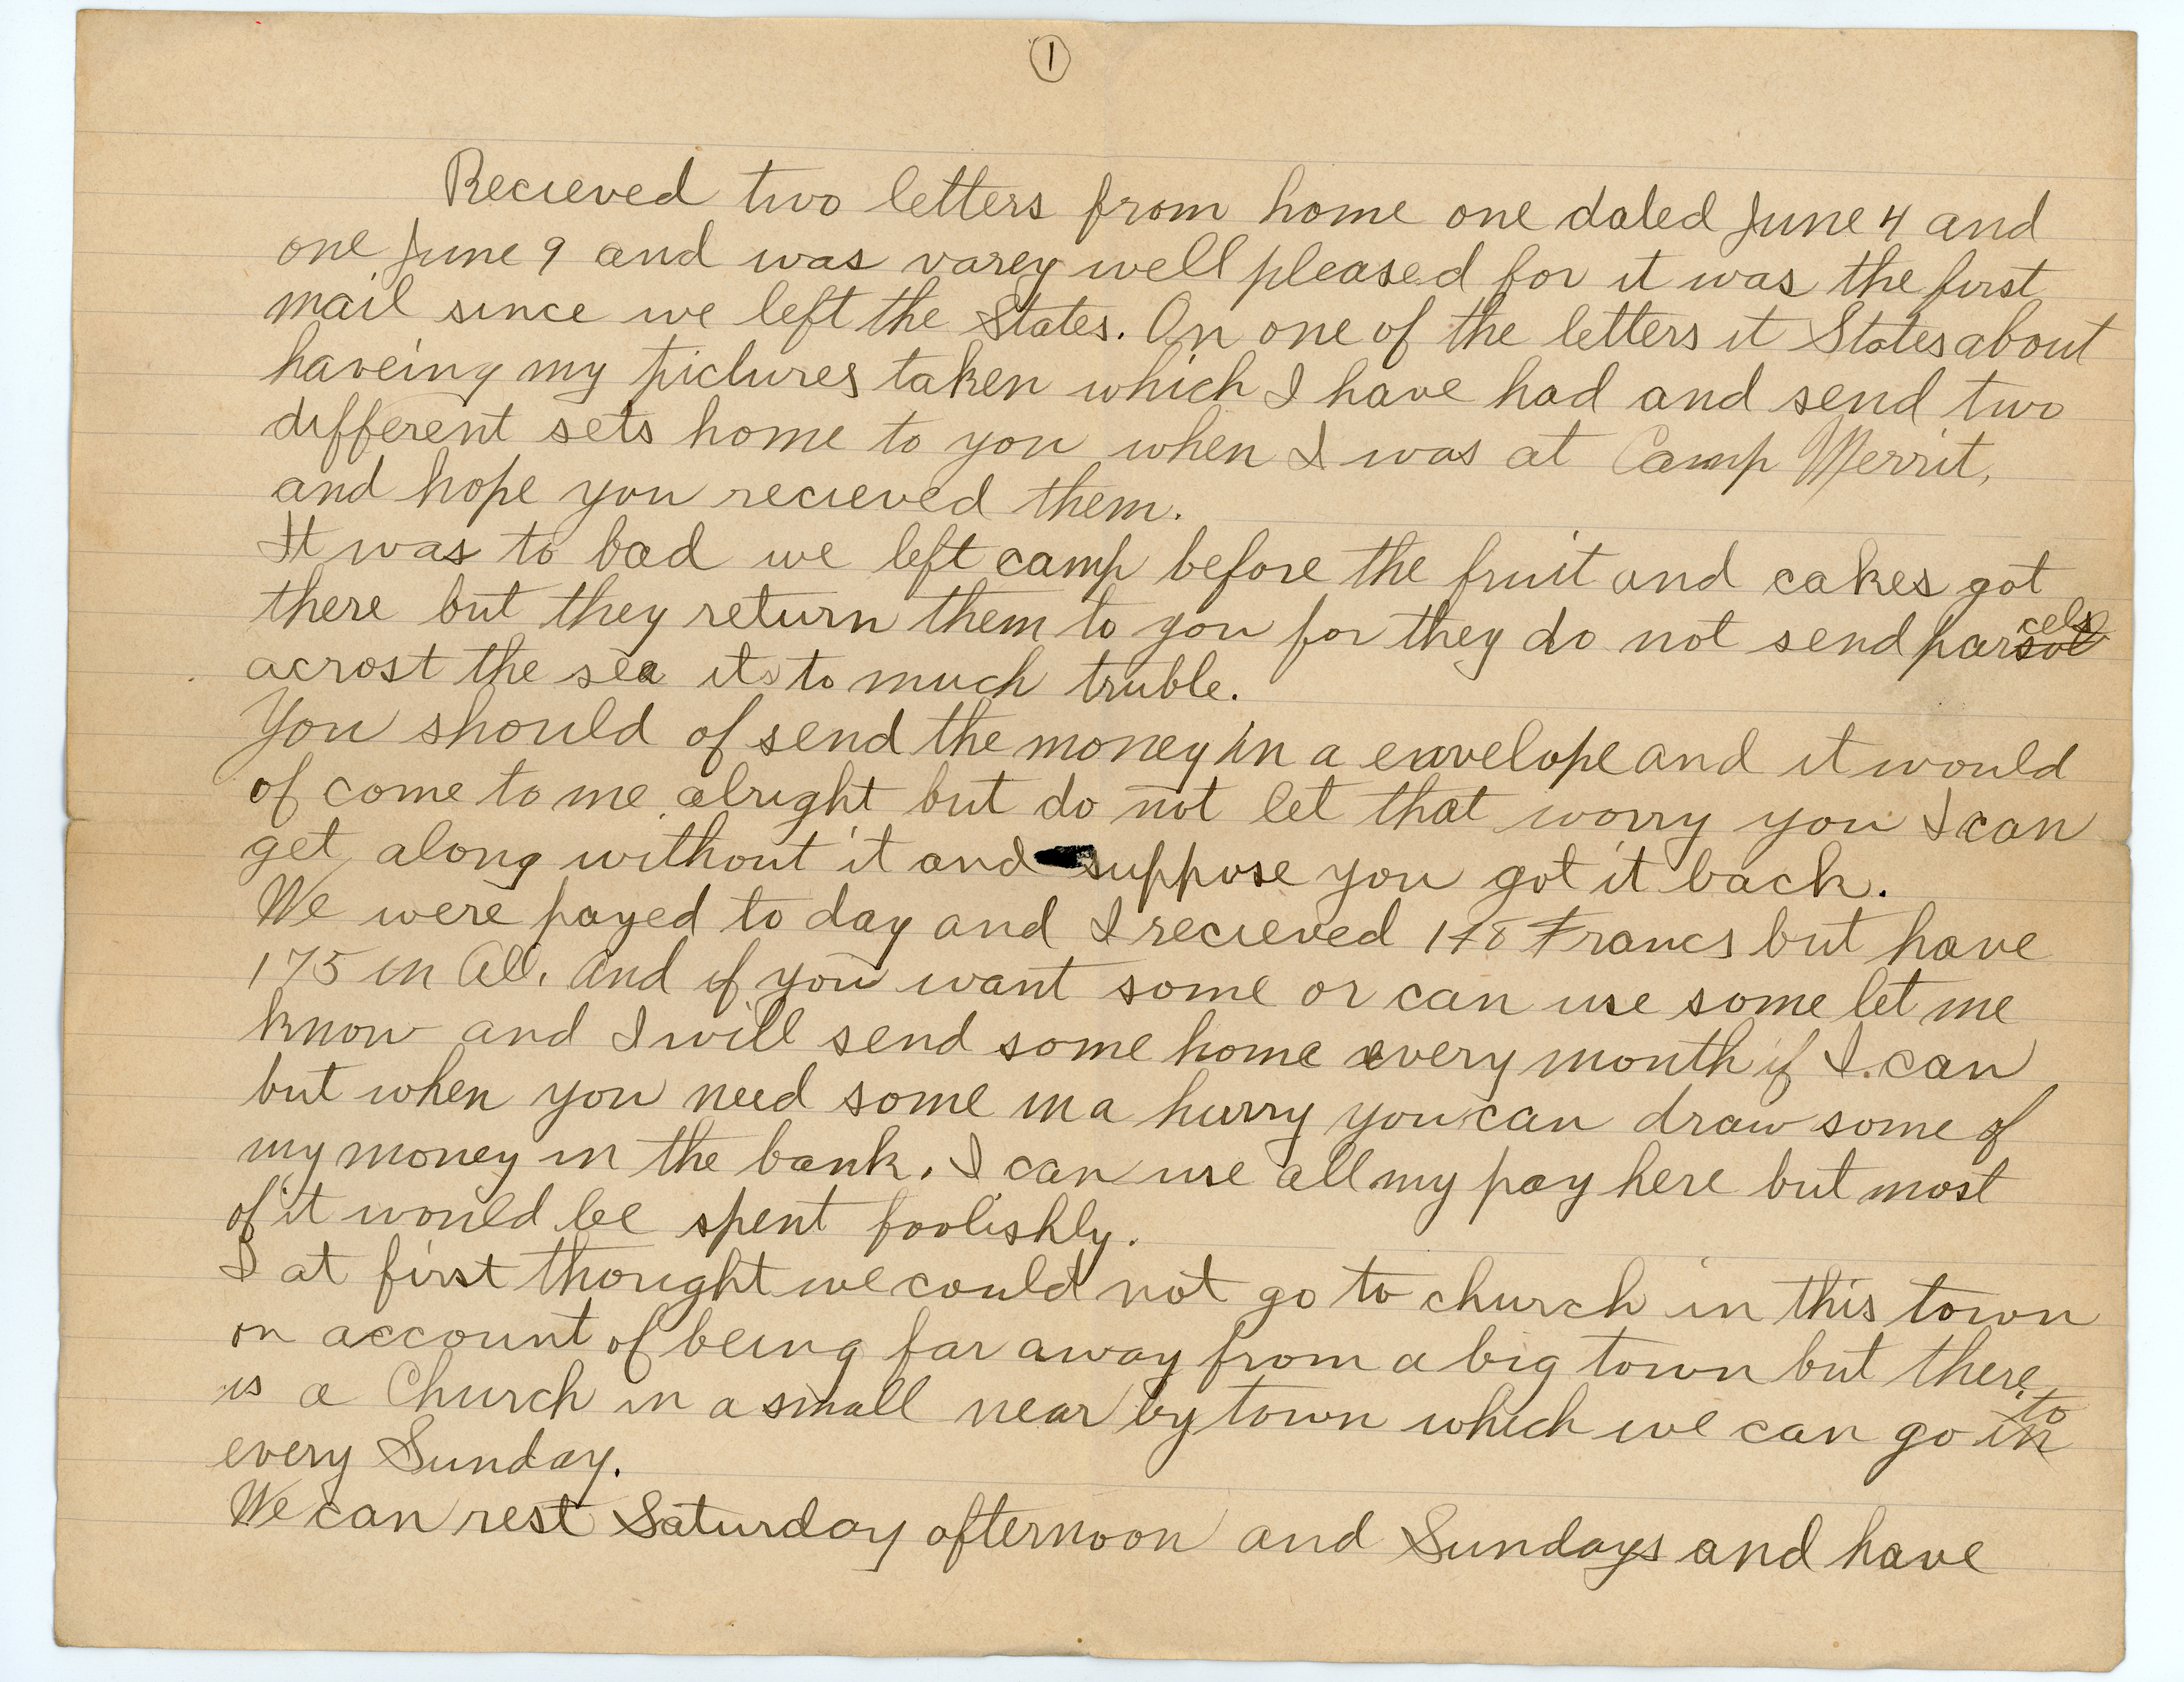 1
Recieved two letters from home one dated June 4 and
one June 9 and was varey well pleased for it was the first
mail since we left the States. On one of the letters it States about
haveing my pictures taken which I have had and send two
different sets home to you when I was at Camp Merrit,
and hope you recieved them.
It was to bad we left camp before the fruit and cakes got
there but they return them to you for they do not send parcels
acrost the sea its to much truble.
You should of send the money in a envelope and it would
of come to me alright but do not let that worry you I can
get along without it and suppose you got it back.
We were payed to day and I recieved Francs but have
175 in All. and if you want some or can use some let me
know and I will send some home every month if I can
but when you need some in a hurry you can draw some of
my money in the bank. I can use all my pay here but most
of it would be spent foolishly.
I at first thought we could not go to church in this town
on account of being far away from a big town but there
is a Church in a small near by town which we can go to
every Sunday.
We can rest Saturday afternoon and Sundays and have